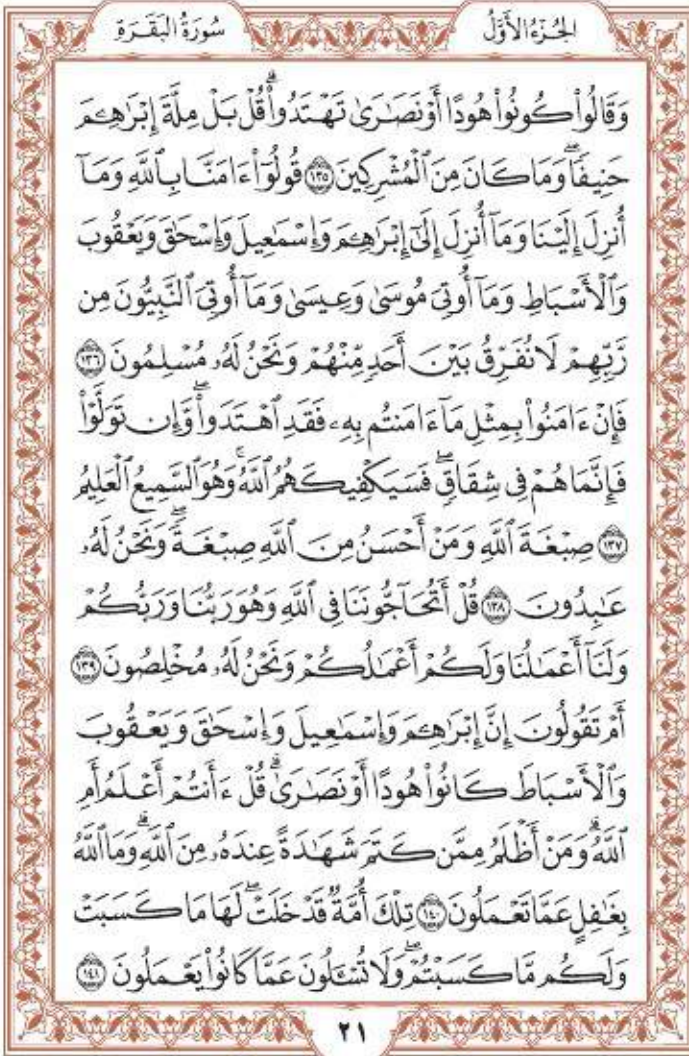 الجُزْءُ الأَوَّلُ
سُورَةُ البَقَرَةِ
وَقَالُواْ كُونُواْ هُودًا أَوْ نَصَـٰرَىٰ تَهْتَدُواْۗ قُلْ بَلْ مِلَّةَ إِبْرَٰهِـۧمَ
حَنِيفًاۖ وَمَا كَانَ مِنَ ٱلْمُشْرِكِينَ ١٣٥ قُولُوٓاْ ءَامَنَّا بِٱللَّهِ وَمَآ
أُنزِلَ إِلَيْنَا وَمَآ أُنزِلَ إِلَىٰٓ إِبْرَٰهِـۧمَ وَإِسْمَـٰعِيلَ وَإِسْحَـٰقَ وَيَعْقُوبَ
وَٱلْأَسْبَاطِ وَمَآ أُوتِىَ مُوسَىٰ وَعِيسَىٰ وَمَآ أُوتِىَ ٱلنَّبِيُّونَ مِن
رَّبِّهِمْ لَا نُفَرِّقُ بَيْنَ أَحَدٍ مِّنْهُمْ وَنَحْنُ لَهُۥ مُسْلِمُونَ ١٣٦
فَإِنْ ءَامَنُواْ بِمِثْلِ مَآ ءَامَنتُم بِهِۦ فَقَدِ ٱهْتَدَواْۖ وَّإِن تَوَلَّوْاْ
فَإِنَّمَا هُمْ فِى شِقَاقٍۖ فَسَيَكْفِيكَهُمُ ٱللَّهُۚ وَهُوَ ٱلسَّمِيعُ ٱلْعَلِيمُ
١٣٧ صِبْغَةَ ٱللَّهِ وَمَنْ أَحْسَنُ مِنَ ٱللَّهِ صِبْغَةًۖ وَنَحْنُ لَهُۥ
عَـٰبِدُونَ ١٣٨ قُلْ أَتُحَآجُّونَنَا فِى ٱللَّهِ وَهُوَ رَبُّنَا وَرَبُّكُمْ
وَلَنَآ أَعْمَـٰلُنَا وَلَكُمْ أَعْمَـٰلُكُمْ وَنَحْنُ لَهُۥ مُخْلِصُونَ ١٣٩
أَمْ تَقُولُونَ إِنَّ إِبْرَٰهِـۧمَ وَإِسْمَـٰعِيلَ وَإِسْحَـٰقَ وَيَعْقُوبَ
وَٱلْأَسْبَاطَ كَانُواْ هُودًا أَوْ نَصَـٰرَىٰۗ قُلْ ءَأَنتُمْ أَعْلَمُ أَمِ
ٱللَّهُۗ وَمَنْ أَظْلَمُ مِمَّن كَتَمَ شَهَـٰدَةً عِندَهُۥ مِنَ ٱللَّهِۗ وَمَا ٱللَّهُ
بِغَـٰفِلٍ عَمَّا تَعْمَلُونَ ١٤٠ تِلْكَ أُمَّةٌ قَدْ خَلَتْۖ لَهَا مَا كَسَبَتْ
وَلَكُم مَّا كَسَبْتُمْۖ وَلَا تُسْـَٔلُونَ عَمَّا كَانُواْ يَعْمَلُونَ ١٤١
٢١